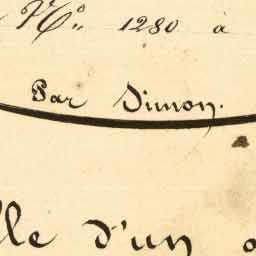 No. 1280 à
Par Simon.
lle d'un